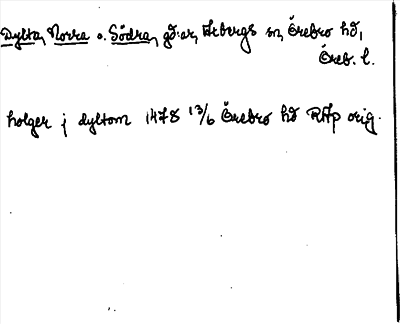 Dylta, Norra o. Södra, gd:ar, Axbergs sn, Örebro hd,
Öreb. l.
holger j dyltom 1478 13/6 Örebro hd RAp orig.